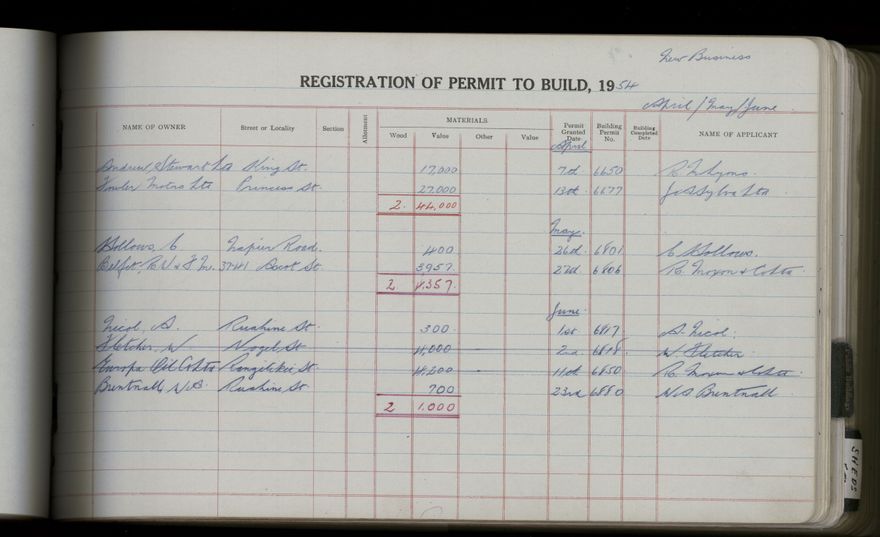 New Business
REGISTRATION OF PERMIT TO BUILD, 1954
April/May/June
NAME OF OWNER Street or Locality Section Allotment MATERIALS Wood Value Other Value Permit Granted Date Building Permit No. Building Completed Date NAME OF APPLICANT
April
Andrew, Stewart Ltd King St. 17,000 7th 6650
Fowler Motors Ltd Princess St. 27,000 13th 6677
2. 44,000
May.
Hollows, C. Napier Road. 400 26th 6801 C Hollows.
37-41 Ascot St. 3957 27th 6806
2 4,357.
June
Nicol, A. Ruahine St. 300 1st 6817 A Nicol.
Fletcher, W Vogel St 4,000 2nd 6818 W. Fletcher
Europa Oil Co Ltd Rangitikei St. 4,200 11th 6850
Brentnall, N.S. Ruahine St 700 23rd 6880 N.S Brentnall
2 1,000
SHEDS